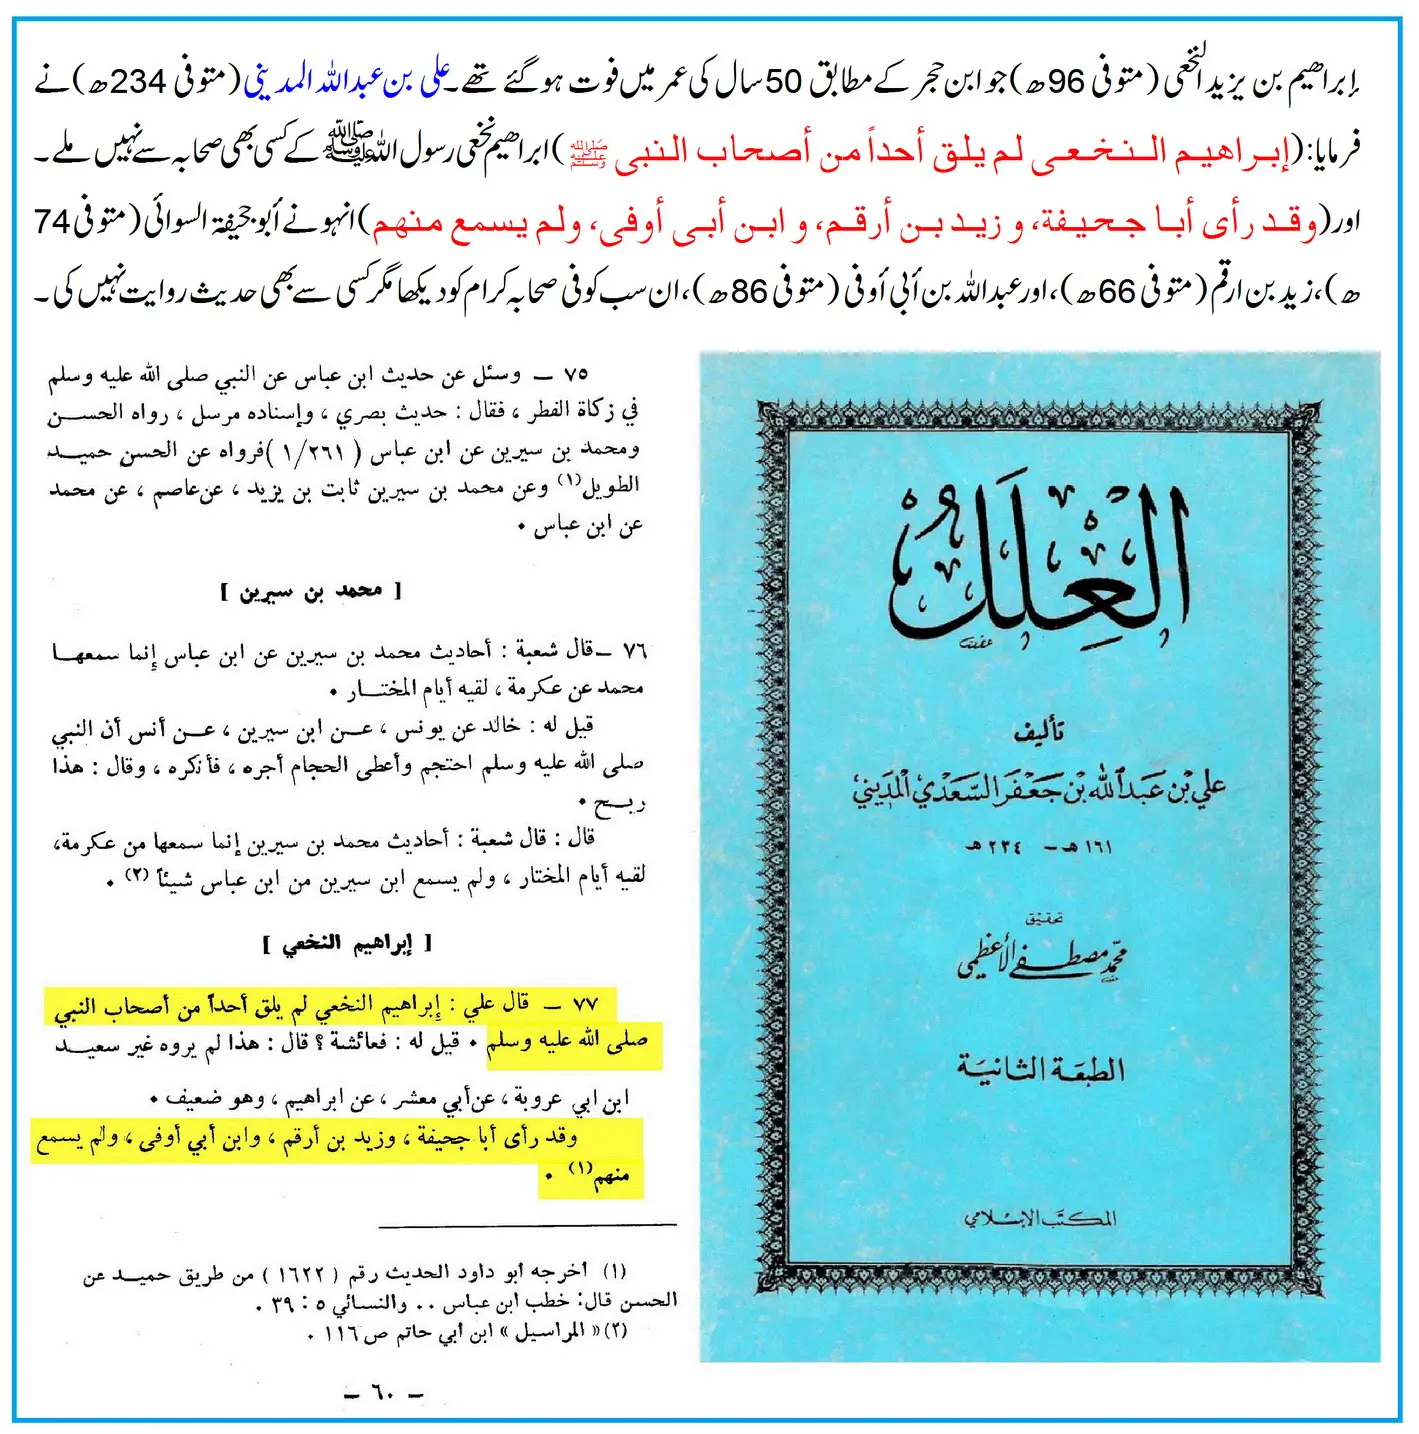 إبراهیم بن یزید النخعی (متوفی 96ھ) جو ابن حجر کے مطابق 50 سال کی عمر میں فوت ہو گئے تھے۔ علی بن عبد اللہ المدینی (متوفی 234ھ) نے
فرمایا: (إبراهيم النخعى لم يلق أحداً من أصحاب النبى ﷺ) ابراھیم نخعی رسول اللہ ﷺ کے کسی بھی صحابہ سے نہیں ملے۔
اور (وقد رأى أبا جحيفة، و زيد بن أرقم، و ابن أبى أوفى، ولم يسمع منهم) انہو نے أبو جحیفۃ السوائی (متوفی 74
ھ)، زید بن ارقم (متوفی 66ھ)، اور عبد اللہ بن أبی أوفی (متوفی 86ھ)، ان سب کوفی صحابہ کرام کو دیکھا مگر کسی سے بھی حدیث روایت نہیں کی۔
٧٥ ــ وسئل عن حديث ابن عباس عن النبي صلى الله عليه وسلم
في زكاة الفطر ، فقال : حديث بصري ، وإسناده مرسل ، رواه الحسن
ومحمد بن سيرين عن ابن عباس ( ١/٢٦١ )فرواه عن الحسن حميد
الطويل(١) وعن محمد بن سيرين ثابت بن يزيد ، عن عاصم ، عن محمد
عن ابن عباس .
[ محمد بن سيرين ]
٧٦ ــ قال شعبة : أحاديث محمد بن سيرين عن ابن عباس إنما سمعها
محمد عن عكرمة ، لقيه أيام المختار .
قيل له : خالد عن يونس ، عن ابن سيرين ، عن أنس أن النبي
صلى الله عليه وسلم احتجم وأعطى الحجام أجره ، فأنكره ، وقال : هذا
ريح .
قال : قال شعبة : أحاديث محمد بن سيرين إنما سمعها من عكرمة،
لقيه أيام المختار ، ولم يسمع ابن سيرين من ابن عباس شيئاً (٢) .
[ إبراهيم النخعي ]
٧٧ ــ قال علي : إبراهيم النخعي لم يلق أحداً من أصحاب النبي
صلى الله عليه وسلم . قيل له : فعائشة ؟ قال : هذا لم يروه غير سعيد
ابن ابي عروبة ، عن أبي معشر ، عن ابراهيم ، وهو ضعيف .
وقد رأى أبا جحيفة ، وزيد بن أرقم ، وابن أبي أوفى ، ولم يسمع
منهم(١) .
(١) أخرجه أبو داود الحديث رقم ( ١٦٢٢ ) من طريق حميد عن
الحسن قال: خطب ابن عباس .. والنسائي ٥ : ٣٩ .
(٢) « المراسيل » ابن ابي حاتم ص ١١٦ .
ــ ٦٠ ــ
العلل
تأليف
علي بن عبد الله بن جعفر السعدي المديني
١٦١ هـ - ٢٣٤ هـ
تحقيق
محمد مصطفى الأعظمي
الطبعة الثانية
المكتب الإسلامي